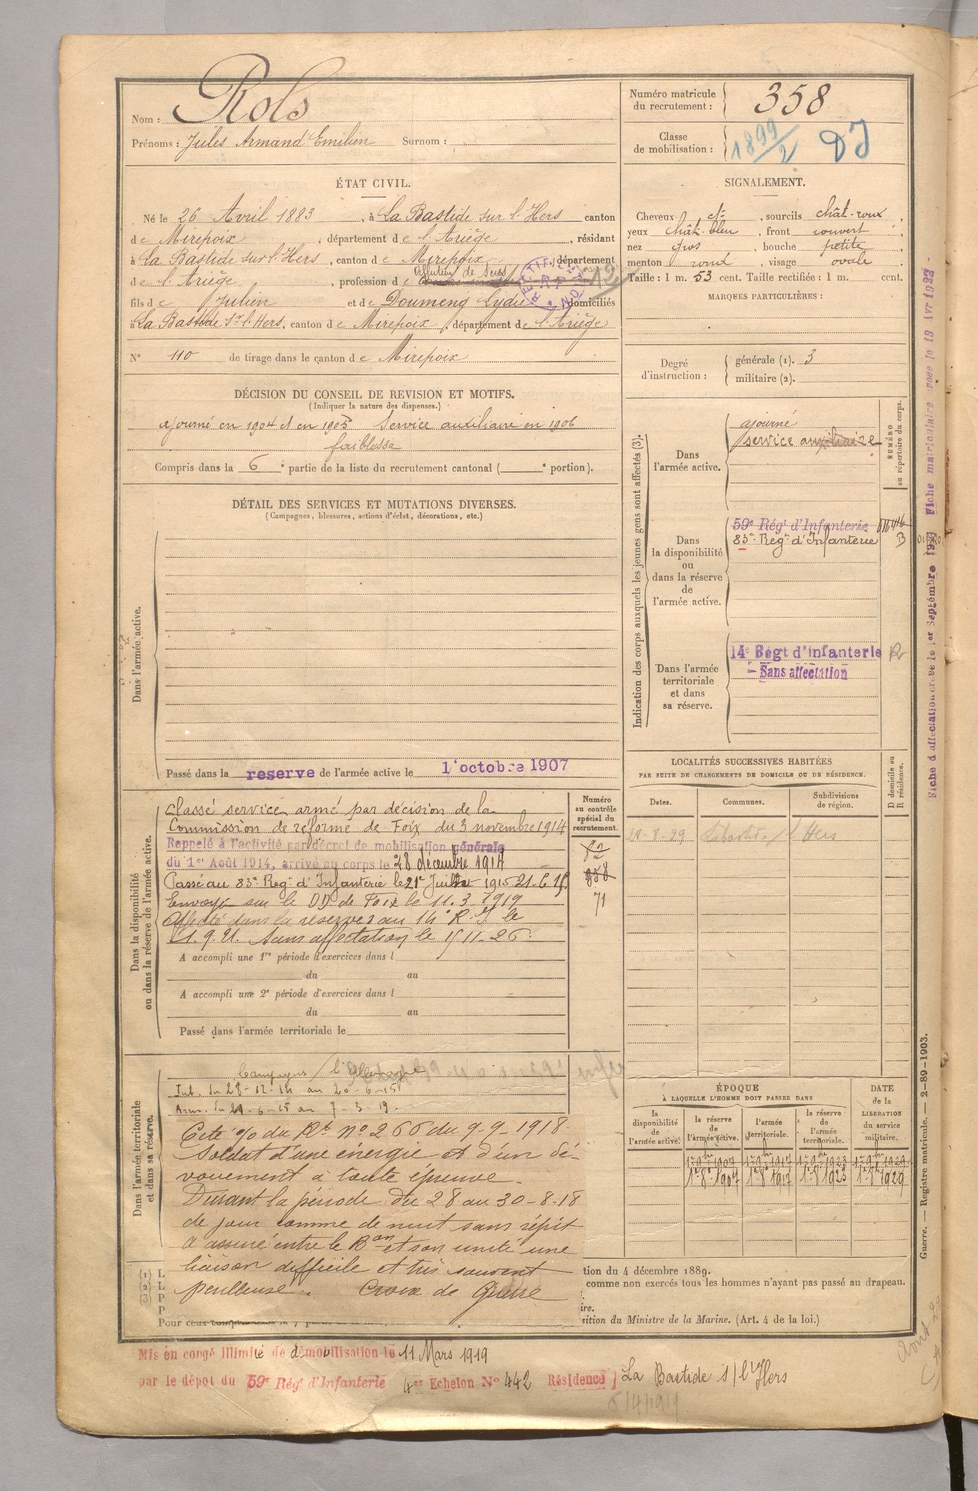 Nom : Rols
Prénoms : Jules Armand Emilien Surnom :
Numéro matricule du recrutement : 358
Classe de mobilisation : 1899/2 DJ
ÉTAT CIVIL.
Né le 26 Avril 1883, à La Bastide sur l'Hers canton
de Mirepoix, département de l'Ariège, résidant
à La Bastide sur l'Hers, canton de Mirepoix département
de l'Ariège, profession de
fils de Julien et de Doumeng Lydie domiciliés
à La Bastide s. l'Hers, canton de Mirepoix, département de l'Ariège
N° 110 de tirage dans le canton de Mirepoix
SIGNALEMENT.
Cheveux ct, sourcils chât-roux,
yeux chât-bleu, front couvert,
nez gros, bouche petite,
menton rond, visage ovale
Taille : 1 m. 53 cent. Taille rectifiée : 1 m. cent.
MARQUES PARTICULIÈRES :
Degré d'instruction :
générale (1). 3
militaire (2).
DÉCISION DU CONSEIL DE REVISION ET MOTIFS.
(Indiquer la nature des dispenses.)
ajourné en 1904 et en 1905 Service auxiliaire en 1906
faiblesse
Compris dans la 6e partie de la liste du recrutement cantonal ( e portion).
DÉTAIL DES SERVICES ET MUTATIONS DIVERSES.
(Campagnes, blessures, actions d'éclat, décorations, etc.)
Dans l'armée active.
Passé dans la reserve de l'armée active le 1er octobre 1907
Indication des corps auxquels les jeunes gens sont affectés (3).
NUMÉRO au répertoire du corps.
Dans l'armée active.
ajourné
service auxiliaire
Dans la disponibilité ou dans la réserve de l'armée active.
59e Régt d'Infanterie
83me Regt d'Infanterie
Dans l'armée territoriale et dans sa réserve.
14e Régt d'infanterie R
- Sans affectation
LOCALITÉS SUCCESSIVES HABITÉES
PAR SUITE DE CHANGEMENTS DE DOMICILE OU DE RÉSIDENCE.
Dates. Communes. Subdivisions de région. D domicile ou R résidence.
Dans la disponibilité ou dans la réserve de l'armée active.
Numéro au contrôle spécial du recrutement.
classé service armé par décision de la
Commission de réforme de Foix du 3 novembre 1914
Rappelé à l'activité par décret de mobilisation générale
du 1er Août 1914, arrivé au corps le 28 décembre 1914
Passé au 83e Regt d'Infanterie le 21 1915 21.6.15
Envoyé sur le DD de Foix le 11.3.1919
Affecté dans la réserve au 14e R.I le
1.9.21. Sans affectation le 15 11-26.
71
A accompli une 1re période d'exercices dans l
du au
A accompli une 2e période d'exercices dans l
du au
Passé dans l'armée territoriale le
Dans l'armée territoriale et dans sa réserve.
Campagne c/ l'Allemagne
Int. du 28-12-14 au 20-6-15
Arm. du 21-6-15 au 7-3-19.
Cité o/o du Rt n° 266 du 9-9-1918.
Soldat d'une énergie et d'un dé-
vouement à toute épreuve.
Durant la période du 28 au 30-8-18
de jour comme de nuit sans répit
a assuré entre le Bon et son unité une
liaison difficile et très souvent
périlleuse. Croix de Guerre
ÉPOQUE
À LAQUELLE L'HOMME DOIT PASSER DANS
la disponibilité de l'armée active.
la réserve de l'armée active.
l'armée territoriale.
la réserve de l'armée territoriale.
DATE de la LIBÉRATION du service militaire.
1er 8bre 1907 1er 8bre 1917 1er 8bre 1923 1er 8bre 1929
tion du 4 décembre 1889.
comme non exercés tous les hommes n'ayant pas passé au drapeau.
ire.
ition du Ministre de la Marine. (Art. 4 de la loi.)
Mis en congé illimité de démobilisation le 11 Mars 1919
par le dépôt du 59e Régt d'Infanterie 4er Echelon N° 442 Résidence La Bastide s/l'Hers
Guerre. — Registre matricule. — 2-89-1903.